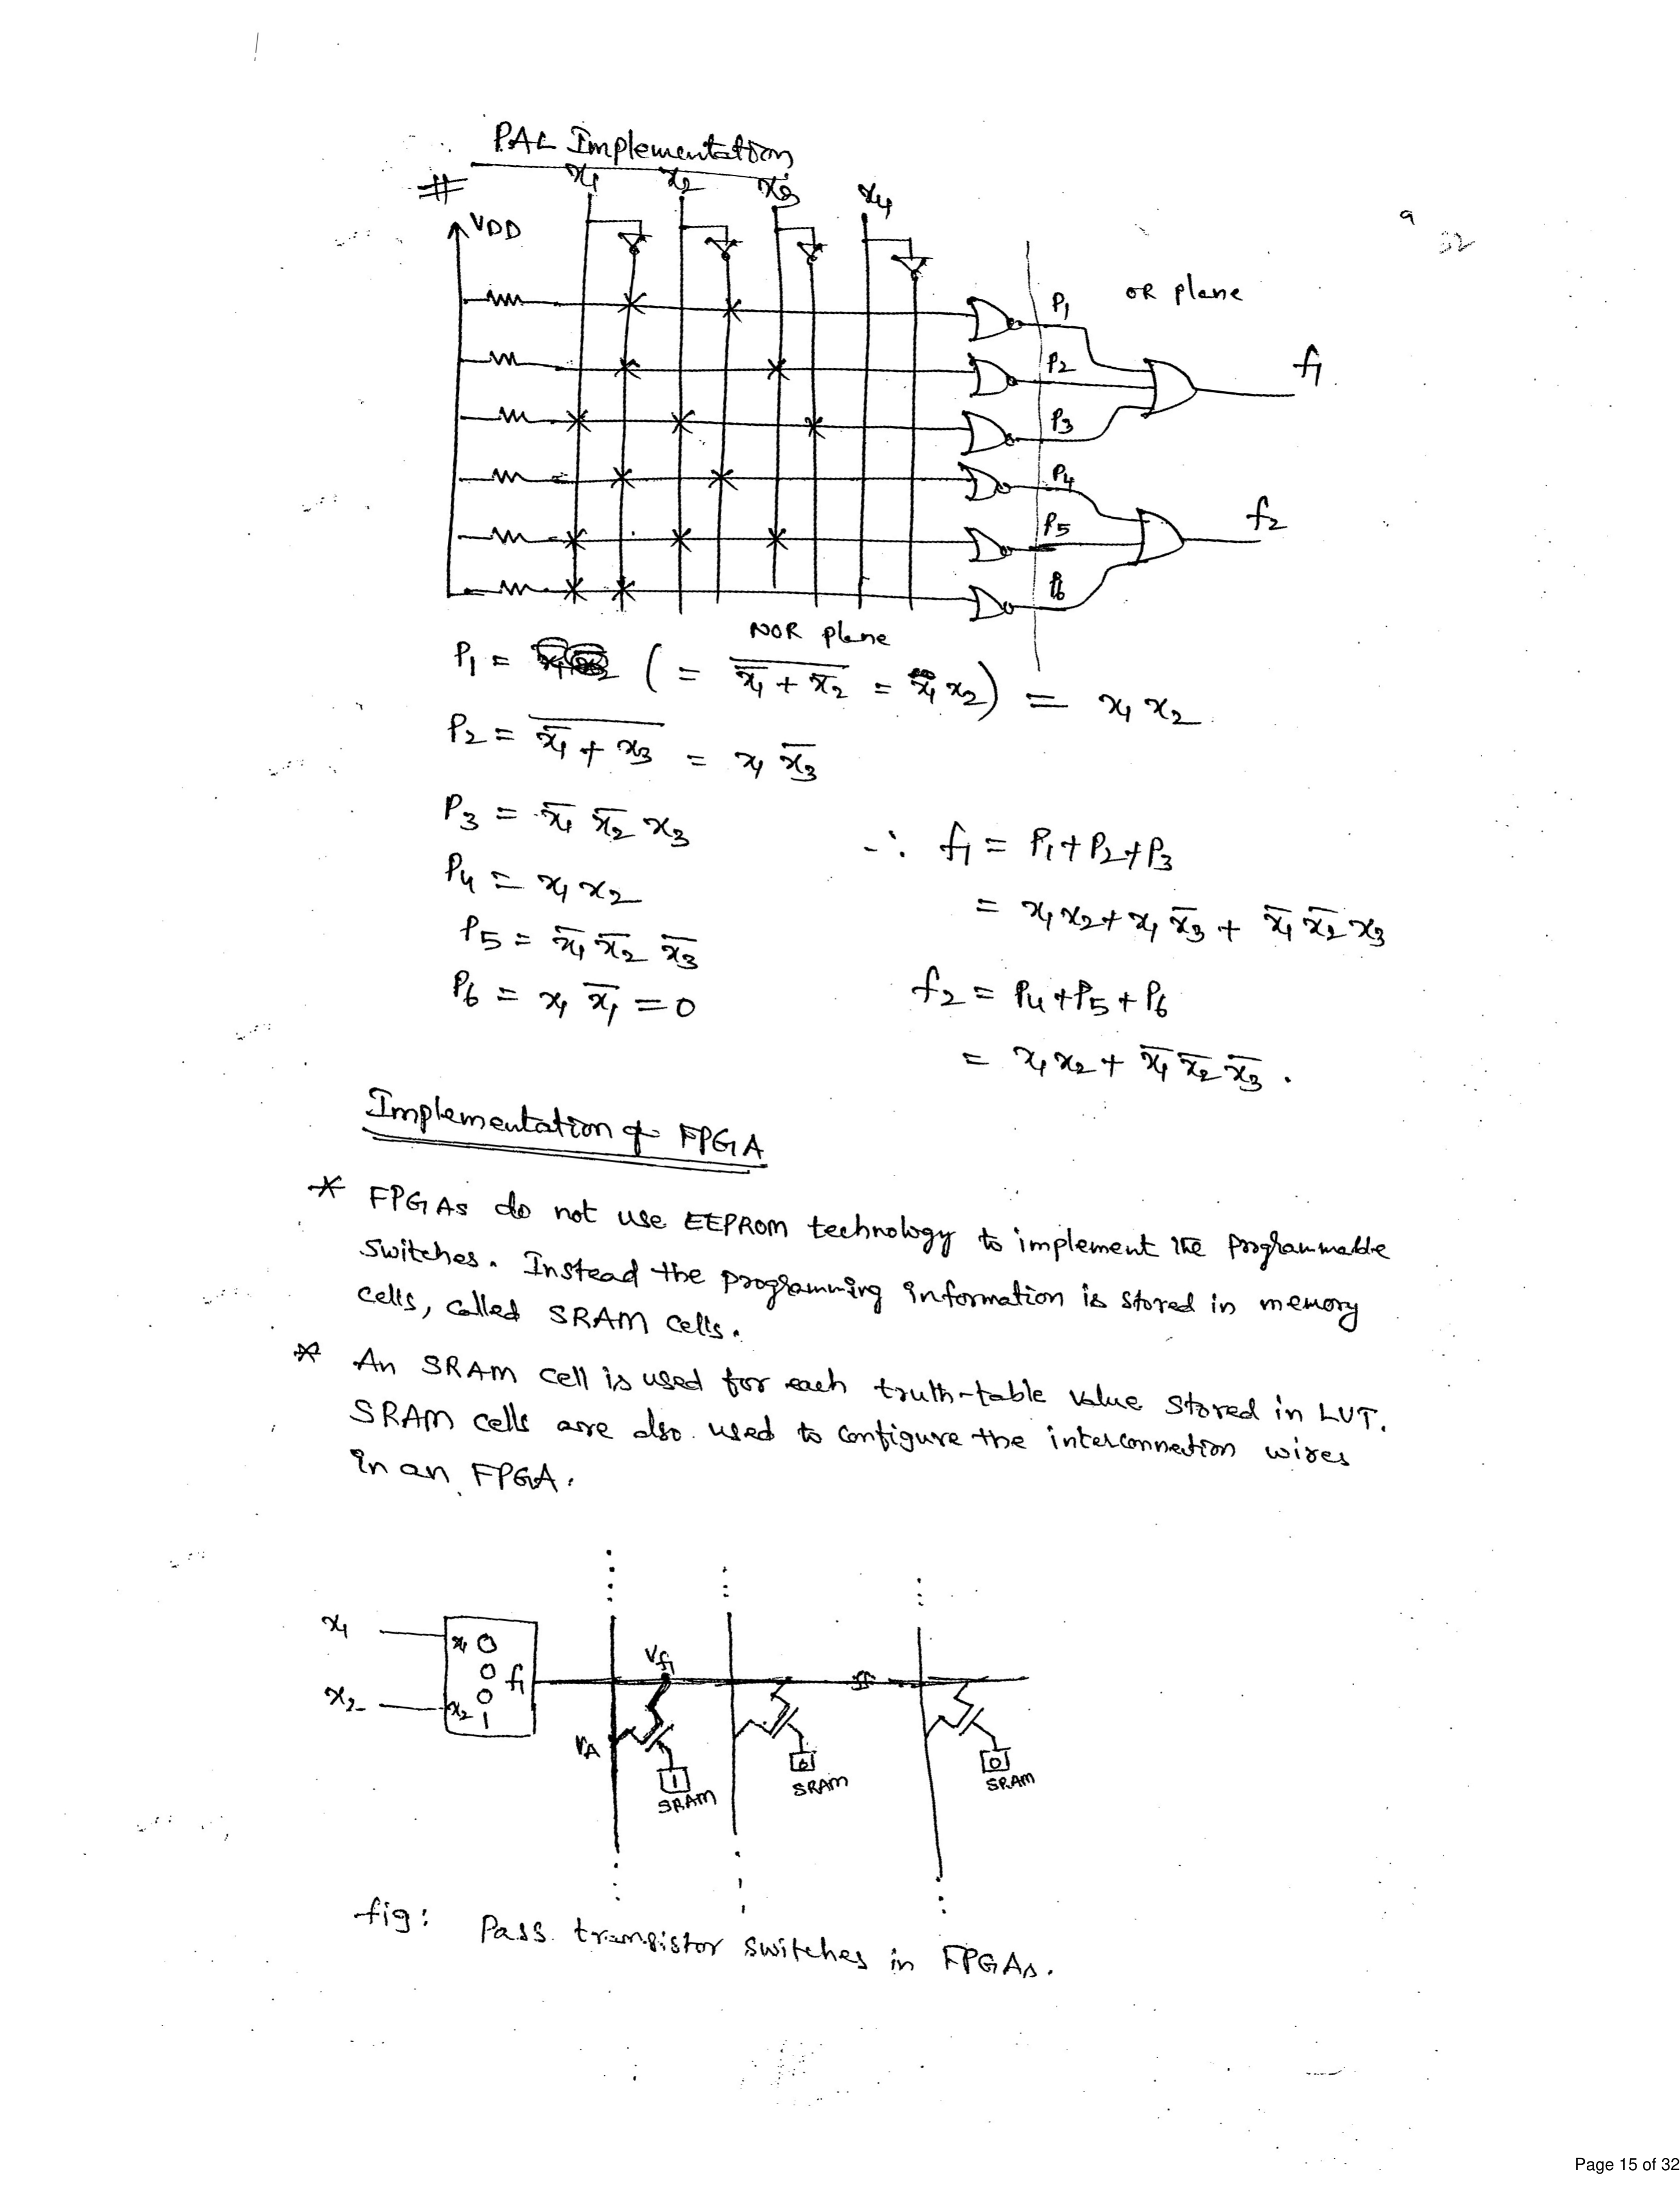 PAL Implementation
#
x1 x2 x3 x4
VDD
9
32
OR plane
P1
P2
f1
P3
P4
P5
f2
P6
NOR plane
P1 = ( = \overline{x̅1 + x̅2} = x1 x2 ) = x1 x2
P2 = \overline{x̅1 + x3} = x1 x̅3
P3 = x̅1 x̅2 x3
∴ f1 = P1 + P2 + P3
P4 = x1 x2
= x1 x2 + x1 x̅3 + x̅1 x̅2 x3
P5 = x̅1 x̅2 x̅3
f2 = P4 + P5 + P6
P6 = x1 x̅1 = 0
= x1 x2 + x̅1 x̅2 x̅3 .
Implementation of FPGA
* FPGAs do not use EEPROM technology to implement the programmable
switches. Instead the programming information is stored in memory
cells, called SRAM cells.
* An SRAM cell is used for each truth-table value stored in LUT.
SRAM cells are also used to configure the interconnection wires
in an FPGA.
x1
x1 0
0 f1
0
x2
x2
1
Vf1
VA
1
SRAM
0
SRAM
0
SRAM
fig: Pass transistor switches in FPGAs.
Page 15 of 32